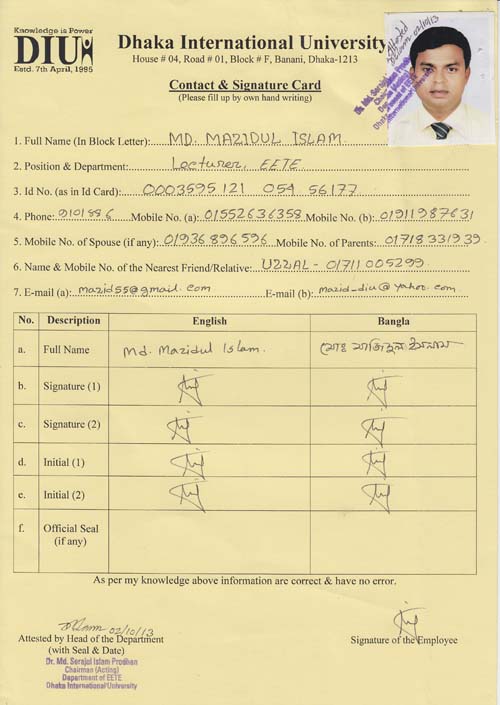 Knowledge is Power
DIU
Estd. 7th April, 1995
Dhaka International University
House # 04, Road # 01, Block # F, Banani, Dhaka-1213
Contact & Signature Card
(Please fill up by own hand writing)
Attested
02/10/13
Dr. Md. Serajul
Chairman
Department of EETE
Dhaka International University
1. Full Name (In Block Letter): MD. MAZIDUL ISLAM
2. Position & Department: Lecturer, EETE
3. Id No. (as in Id Card): 0003595121 054 56177
4. Phone: 9101886 Mobile No. (a): 01552636358 Mobile No. (b): 01911987631
5. Mobile No. of Spouse (if any): 01936896596 Mobile No. of Parents: 01718331939
6. Name & Mobile No. of the Nearest Friend/Relative: UZZAL - 01711005299
7. E-mail (a): mazid55@gmail.com E-mail (b): mazid_diu@yahoo.com
No. Description English Bangla
a. Full Name Md. Mazidul Islam. মোঃ মাজিদুল ইসলাম
b. Signature (1)
c. Signature (2)
d. Initial (1)
e. Initial (2)
f. Official Seal
(if any)
As per my knowledge above information are correct & have no error.
02/10/13
Attested by Head of the Department Signature of the Employee
(with Seal & Date)
Dr. Md. Serajul Islam Prodhan
Chairman (Acting)
Department of EETE
Dhaka International University